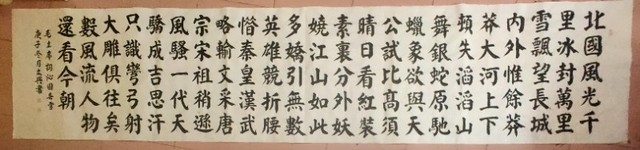 北國風光千
里冰封萬里
雪飄望長城
內外惟餘莽
莽大河上下
頓失滔滔山
舞銀蛇原馳
蠟象欲與天
公試比高須
晴日看紅裝
素裹分外妖
嬈江山如此
多嬌引無數
英雄競折腰
惜秦皇漢武
略輸文采唐
宗宋祖稍遜
風騷一代天
驕成吉思汗
只識彎弓射
大雕俱往矣
數風流人物
還看今朝
毛主席詞沁園春雪
庚子冬月